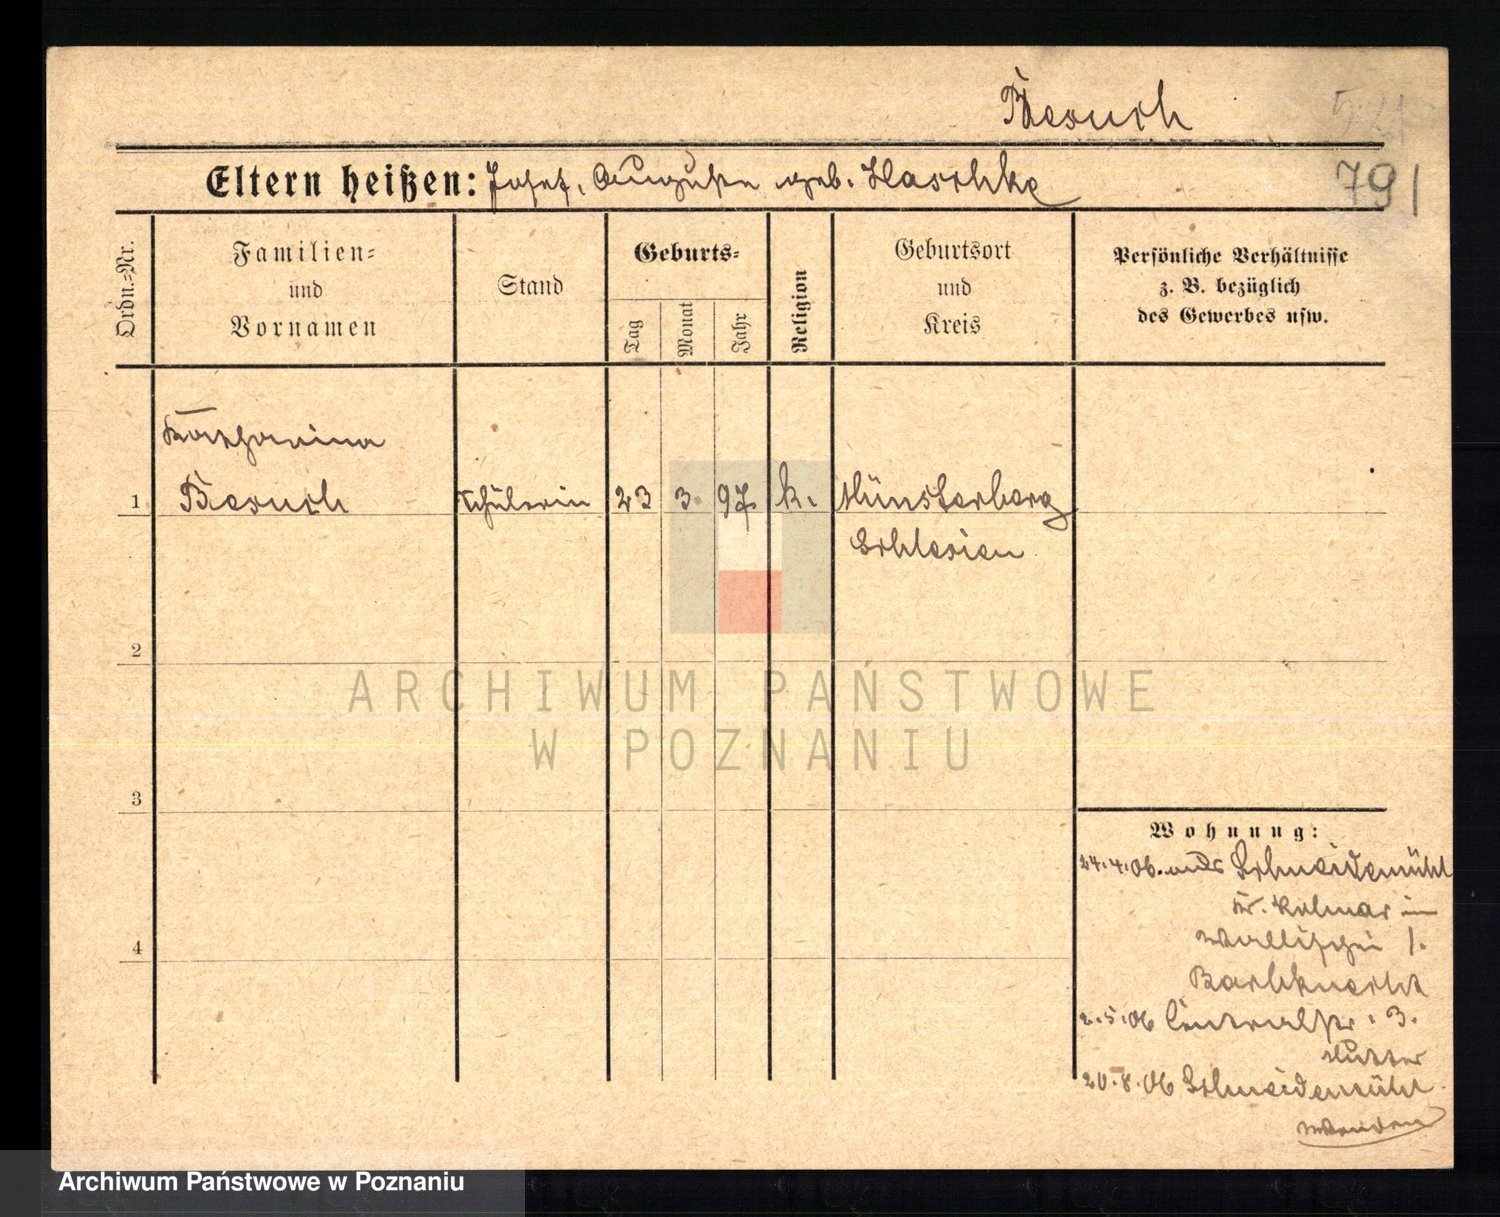 Besuch
521
791
Eltern heißen: Josef, Auguste geb. Haschke
Ordn.-Nr.
Familien- und Vornamen
Stand
Geburts-
Tag
Monat
Jahr
Religion
Geburtsort und Kreis
Persönliche Verhältnisse
z. B. bezüglich
des Gewerbes usw.
Katharina
1 Besuch Schülerin 23 3. 97. k. Münsterberg
Schlesien
2
3
4
Wohnung:
24.4.06. aus Schneidemühl
Kr. Kolmar in
Wallischei 1.
Bachknecht
2.5.06 Centralstr. 3.
Mutter
20.8.06 Schneidemühl
wenden
ARCHIWUM PAŃSTWOWE
W POZNANIU
Archiwum Państwowe w Poznaniu